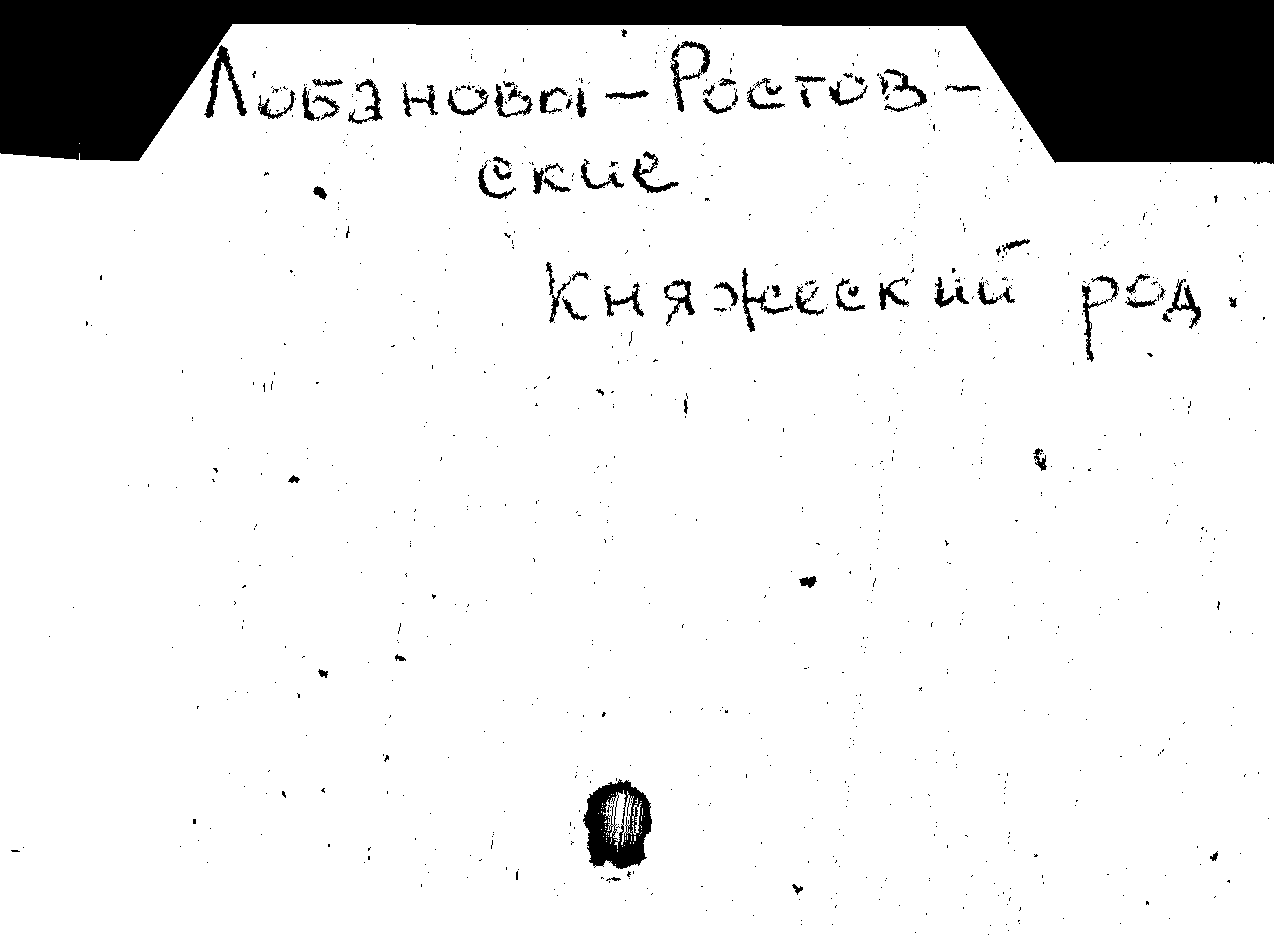 Лобановы-Ростов-
ские
Княжеский род.